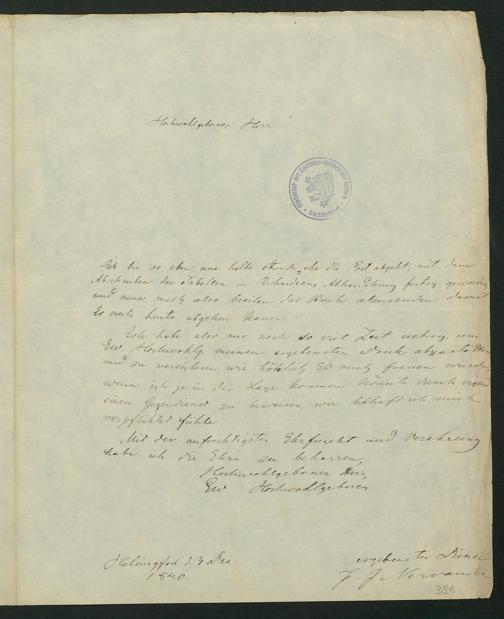 Hochwohlgeborner Herr!
Bibliothek der Ludwigs-Universität Gießen
Landeseigent.
Ich bin so eben, eine halbe Stunde, ehe die Post abgeht, mit dem
Abschreiben der Tabellen in Richardsons Abhandlung fertig geworden
und muss mich also beeilen das Buch abzusenden damit
Es noch heute abgehen kann.
Ich habe also nur noch so viel Zeit übrig um
Ew Hochwohlg meinen ergebensten Dank abzustatten
und zu versichern wie höchlich Es mich freuen würde
wenn ich je in der Lage kommen könnte durch irgend
einen Gegendienst zu beweisen wie lebhaft ich mich
verpflichtet fühle
Mit der aufrichtigsten Ehrfurcht und Verehrung
habe ich die Ehre zu beharren,
Hochwohlgeborner Herr,
Ew Hochwohlgeboren
Helsingfors d. 3 Dec.
1840.
ergebenster Diener
J. J. Nervander
381